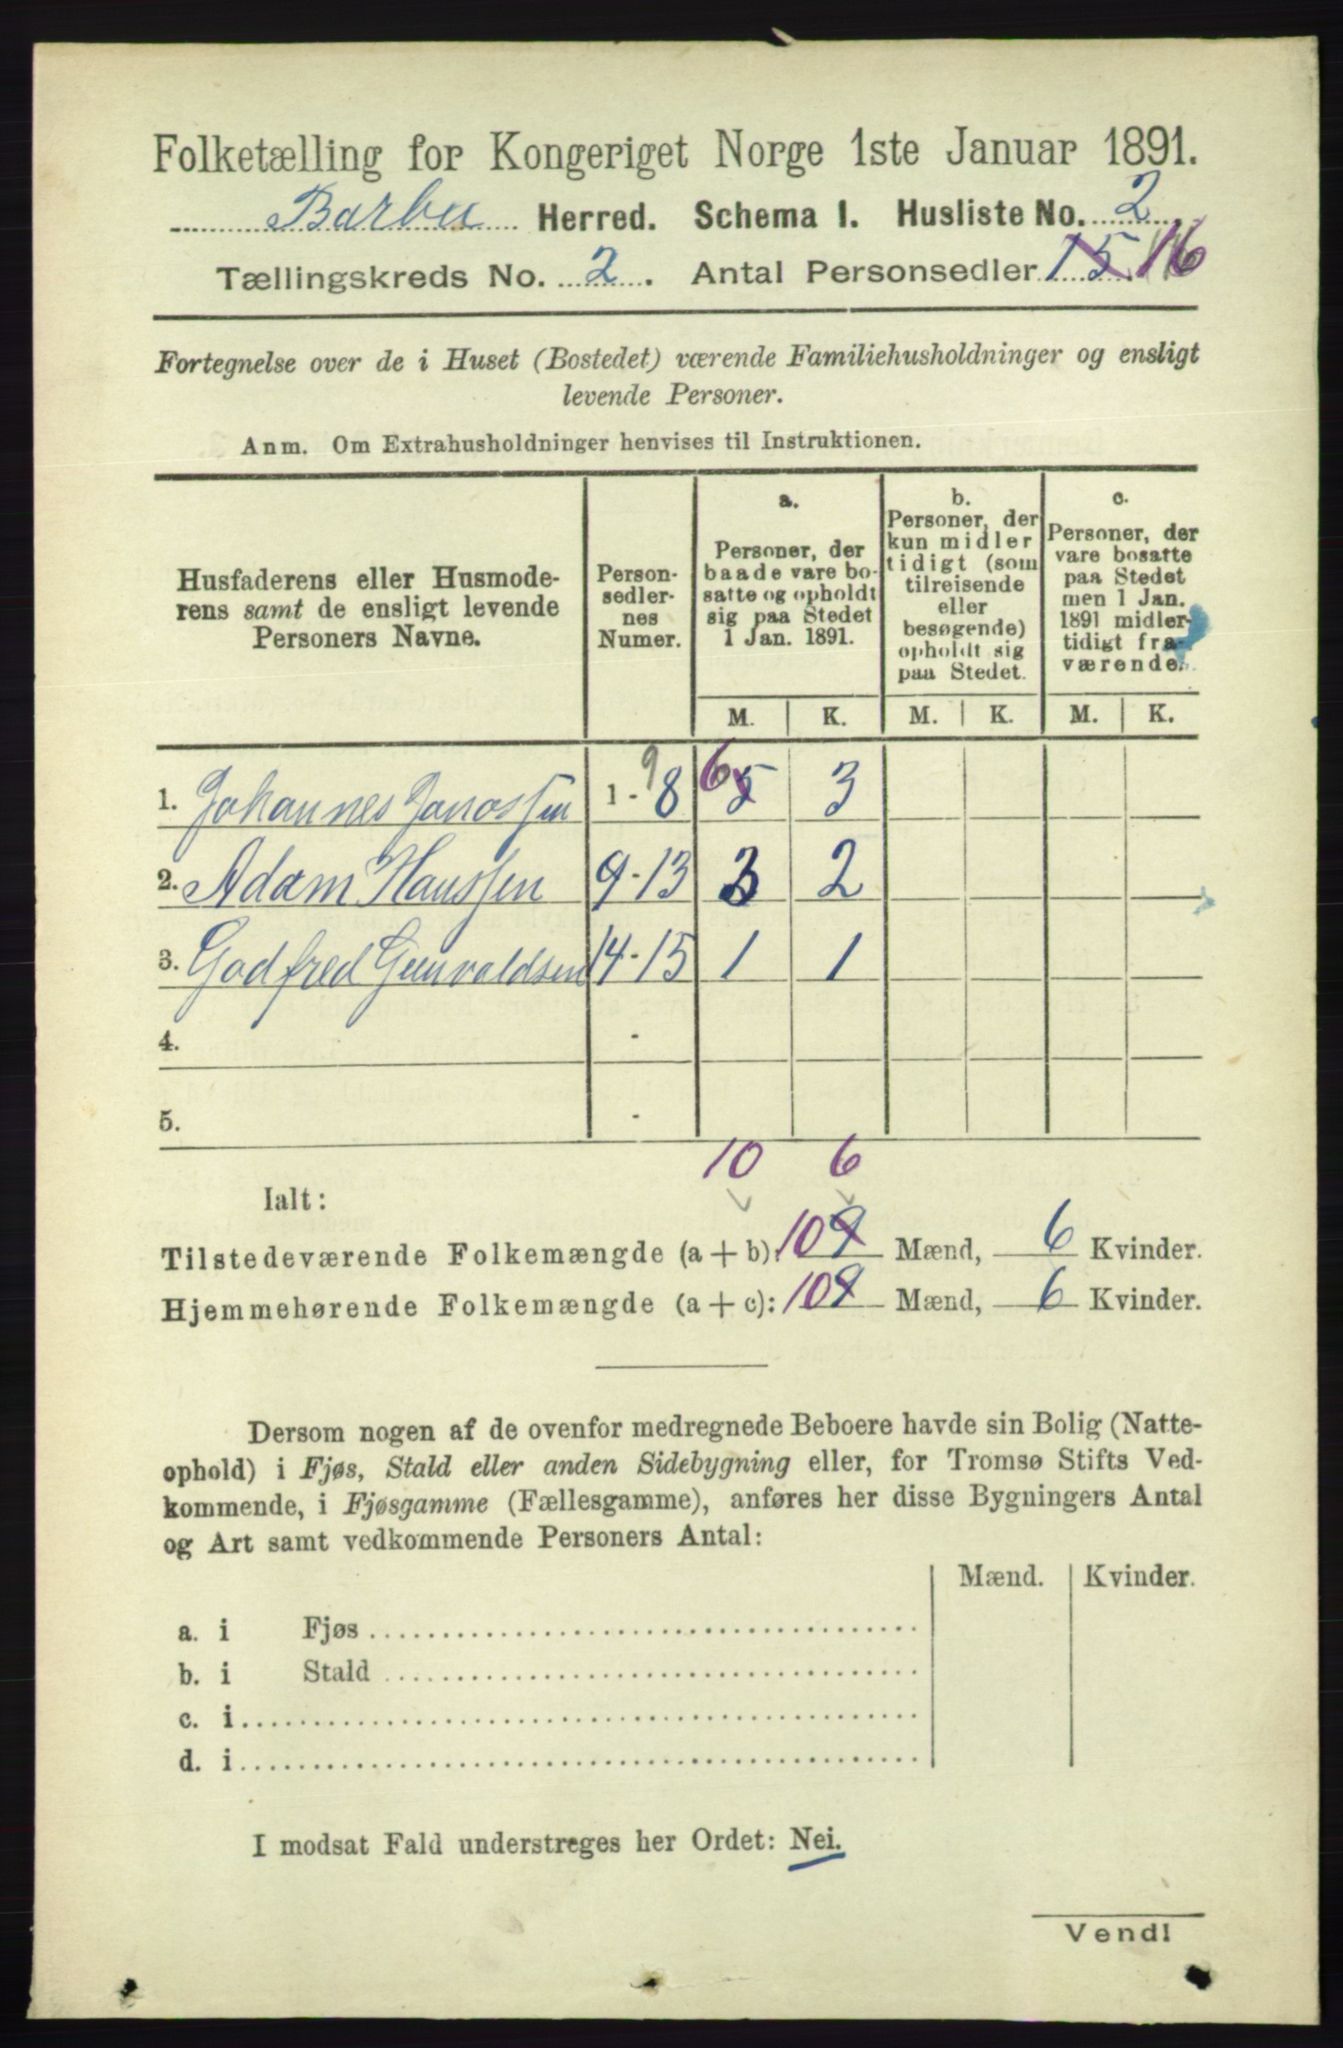 Folketælling for Kongeriget Norge 1ste Januar 1891.
Barbu Herred. Schema I. Husliste No. 2
Tællingskreds No. 2. Antal Personsedler 15 16
Fortegnelse over de i Huset (Bostedet) værende Familiehusholdninger og ensligt
levende Personer.
Anm. Om Extrahusholdninger henvises til Instruktionen.
Husfaderens eller Husmode-
rens samt de ensligt levende
Personers Navne.
Person-
sedler-
nes
Numer.
a.
Personer, der
baade vare bo-
satte og opholdt
sig paa Stedet
1 Jan. 1891.
b.
Personer, der
kun midler
tidigt (som
tilreisende
eller
besøgende)
opholdt sig
paa Stedet.
c.
Personer, der
vare bosatte
paa Stedet
men 1 Jan.
1891 midler-
tidigt fra-
værende.
M. K. M. K. M. K.
1. Johannes Jonassen 1 - 9 8 6 5 3
2. Adam Hanssen 9-13 3 2
3. Godfred Gunvaldsen 14-15 1 1
4. -
5. -
10 6
Ialt:
Tilstedeværende Folkemængde (a + b): 10 9 Mænd, 6 Kvinder.
Hjemmehørende Folkemængde (a + c): 10 9 Mænd, 6 Kvinder.
Dersom nogen af de ovenfor medregnede Beboere havde sin Bolig (Natte-
ophold) i Fjøs, Stald eller anden Sidebygning eller, for Tromsø Stifts Ved-
kommende, i Fjøsgamme (Fællesgamme), anføres her disse Bygningers Antal
og Art samt vedkommende Personers Antal:
Mænd. Kvinder.
a. i Fjøs
b. i Stald
c. i
d. i
I modsat Fald understreges her Ordet: Nei.
Vend!